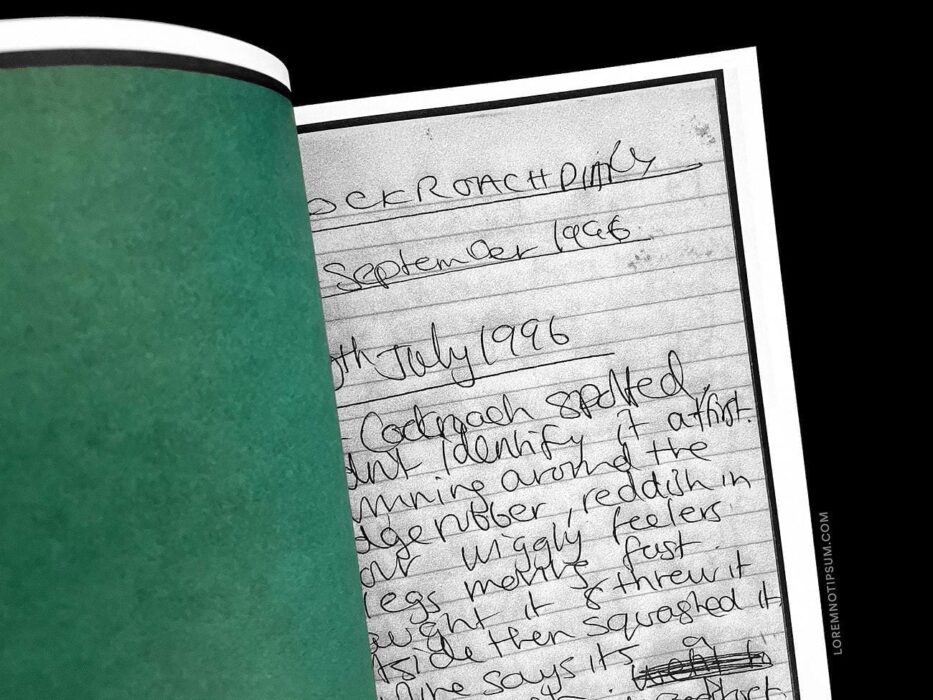 OCKROACH DIARY
September 1996
th July 1996
Cockroach spotted,
dnt Identify it at first.
unning around the
dge rubber, reddish in
our wiggly feelers
legs moving fast.
aught it & threw it
tside then squashed it
says its a
LOREMNOTIPSUM.COM